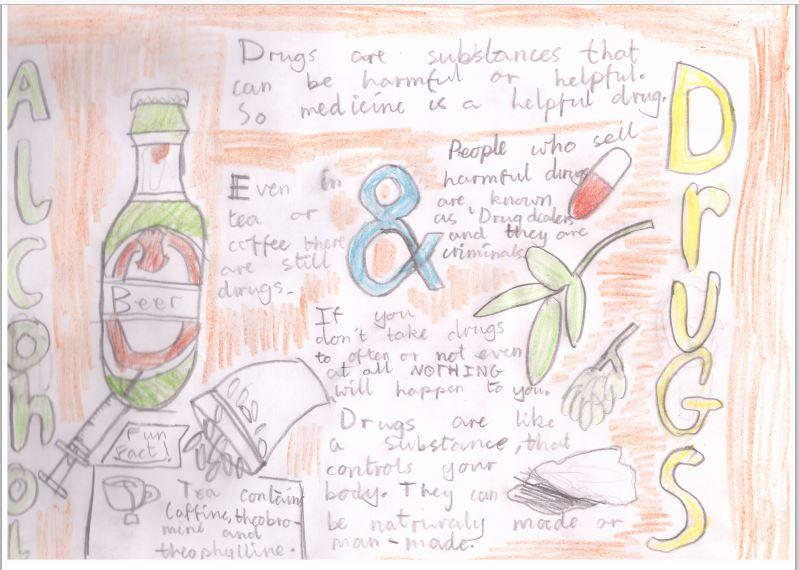 Alcohol
Drugs are substances that
can be harmful or helpful.
So medicine is a helpful drug.
Drugs
Even in
tea or
coffee there
are still
drugs.
&
People who sell
harmful drugs
are known
as 'Drug dealers
and they are
criminals
Beer
If you
don't take drugs
to often or not even
at all NOTHING
will happen to you.
Drugs are like
a substance, that
controls your
body. They can
be naturaly made or
man-made.
Fun
Fact!
Tea contain
Caffine, theobro-
mine and
theophylline.